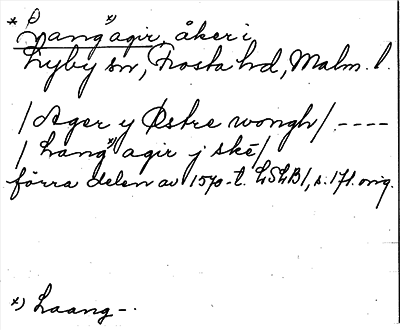 * Lang x) agir, åker i
Lyby sn, Frosta hd, Malm. l.
/ Ager y Østre wongh / ----
/ Lang x) agir j skē /
förra delen av 1570-t. LSLB 1, s. 171. orig.
x) Laang-.